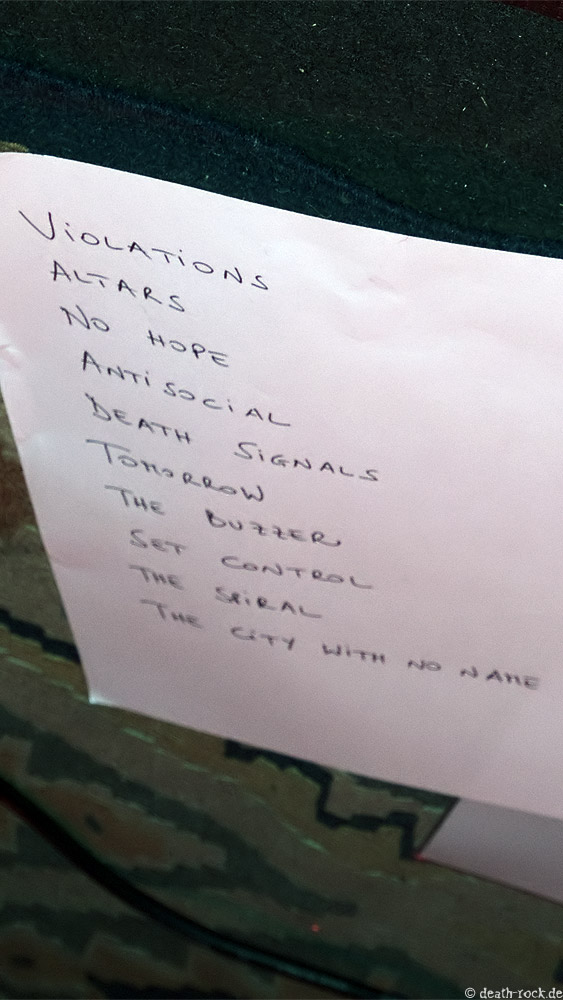 ViOLATiONS
ALTARS
NO HOPE
ANTiSOCiAL
DEATH SiGNALS
TOMORROW
THE BUZZER
SET CONTROL
THE SPiRAL
THE CiTY WiTH NO NAME
© death-rock.de